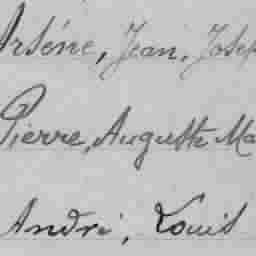 Arsène, Jean, Josep
Pierre, Auguste Ma
André, Louis